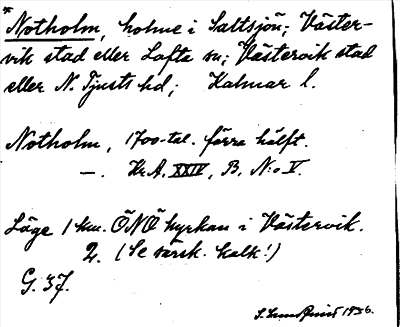 * Notholm, holme i Saltsjön; Väster-
vik stad eller Lofta sn; Västervik stad
eller N. Tjusts hd; Kalmar l.
Notholm, 1700-tal. förra hälft.
—. Kr.A. XXIV, B, N:o V.
Läge 1 km. ÖNÖ kyrkan i Västervik.
2. (Se särsk. kalk!)
G. 37.
1936.